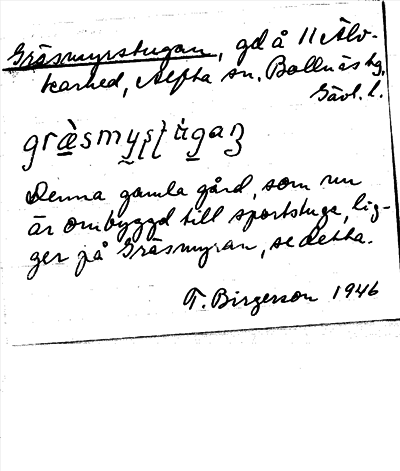 Gräsmyrstugan, gd å 11 Älv-
karhed, Alfta sn. Bollnäs tg.
Gävl. l.
græ̀smyʂʈùgaɳ
Denna gamla gård, som nu
är ombyggd till sportstuga, lig-
ger på Gräsmyran, se detta.
T. Birgerson 1946